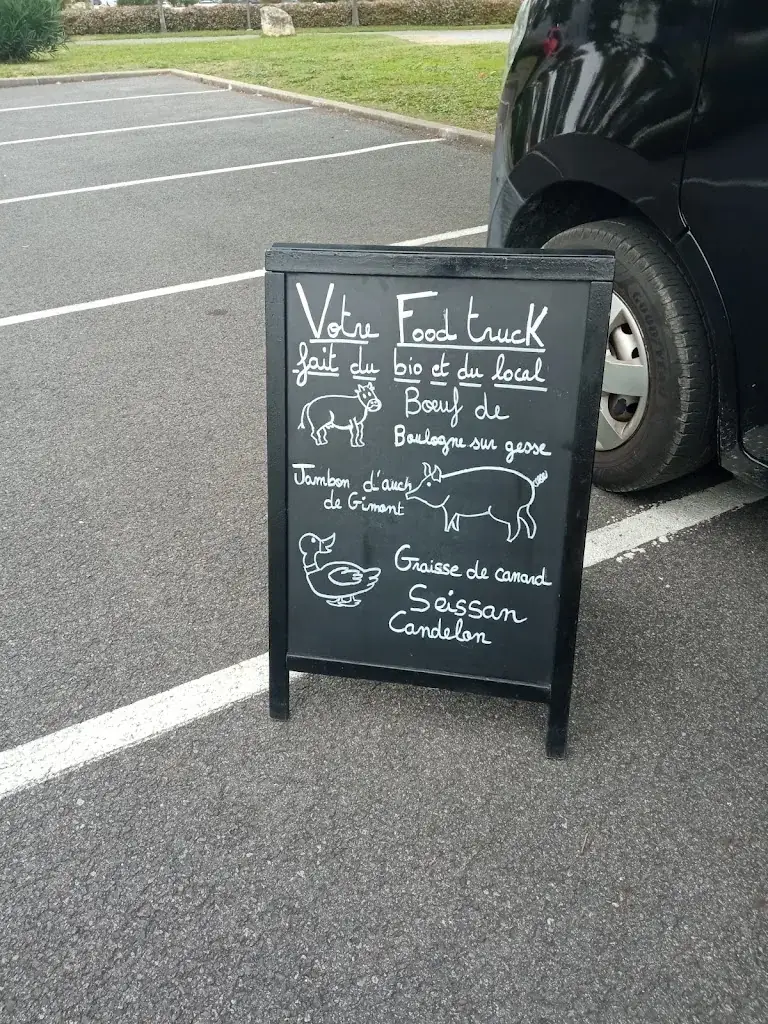 Votre Food truck
fait du bio et du local
Bœuf de
Boulogne sur gesse
Jambon d'auch
de Gimont
Graisse de canard
Seissan
Candelon